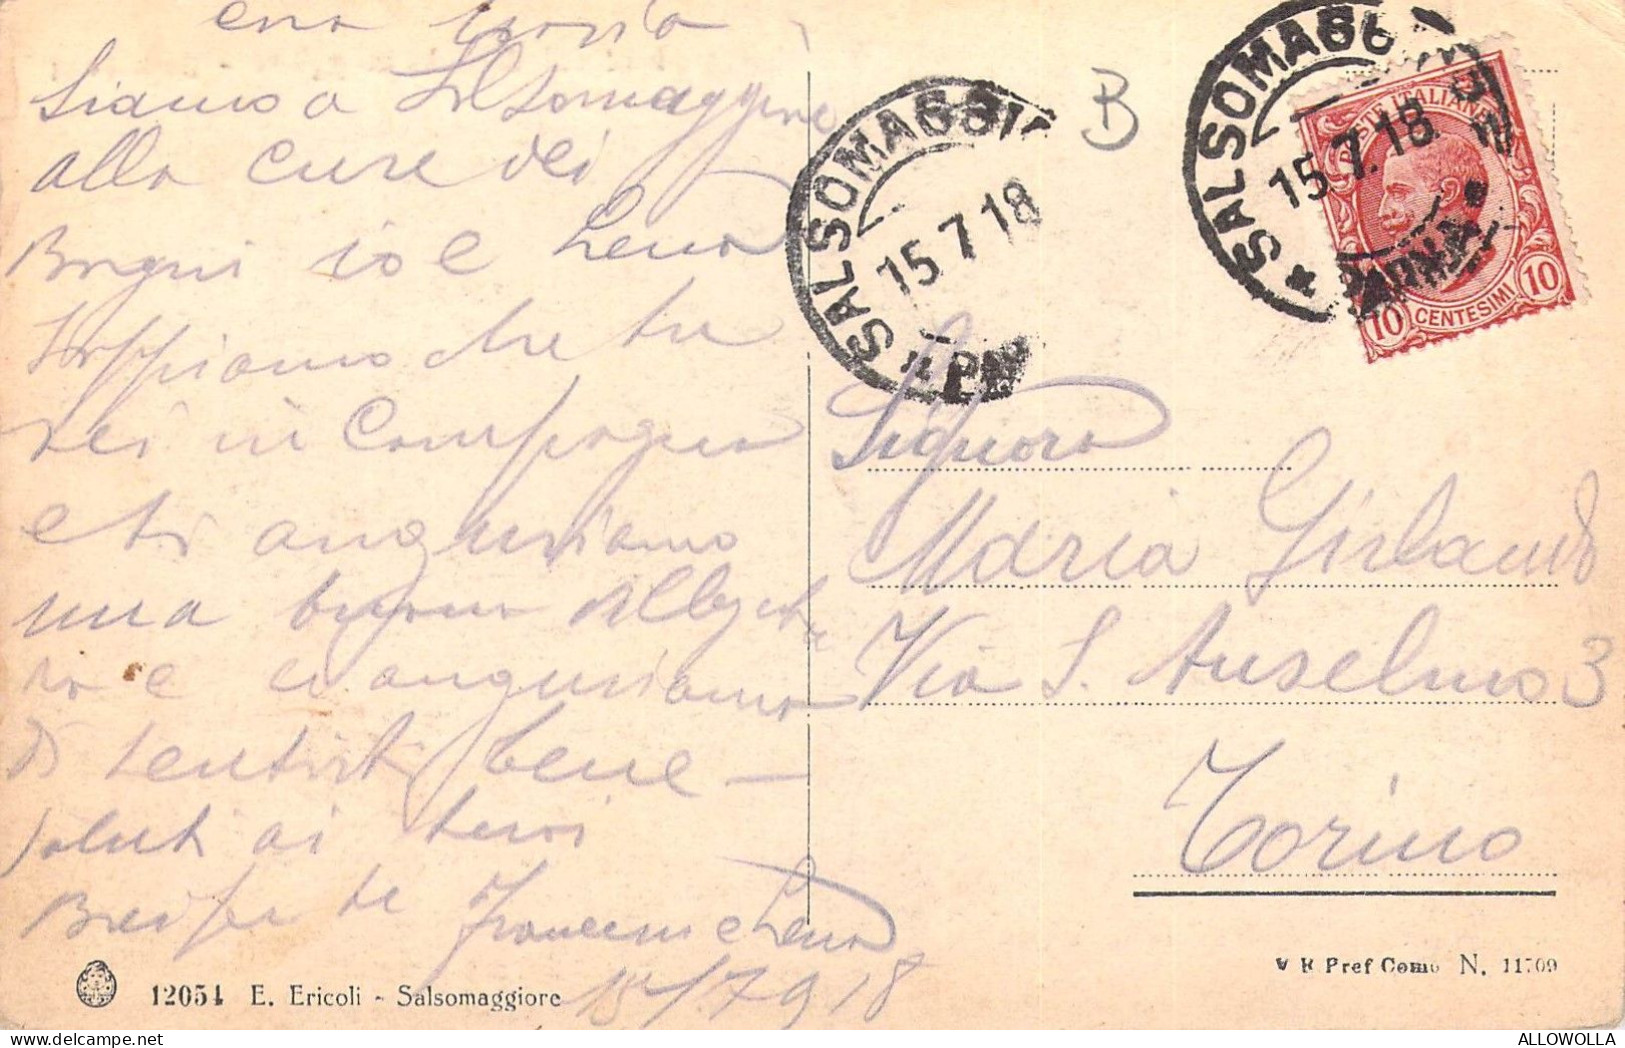 Siamo a Salsomaggiore
alla cure dei
Bagni io e Lena
Sappiamo che tu
sei in Campagna
e ti auguriamo
una buona
e ci auguriamo
di sentirti bene —
saluti ai tuoi
Francesco e Lena
15/7 918
12054 E. Ericoli - Salsomaggiore
SALSOMAGGIO
15 7 18
B
SALSOMAGG
15.7.18
PARMA
POSTE ITALIANE
10 CENTESIMI 10
Signora
Maria Girlando
Via S. Anselmo 3
Torino
V R Pref Como N. 11709
ALLOWOLLA